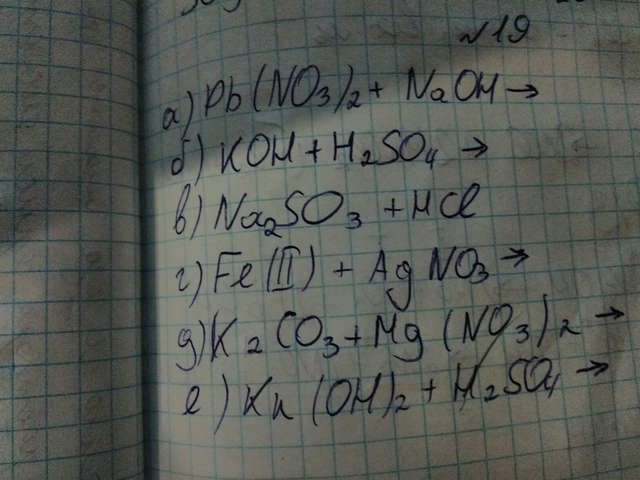 №19
а) Pb(NO₃)₂ + NaOH →
б) KOH + H₂SO₄ →
в) Na₂SO₃ + HCl
г) Fe(II) + AgNO₃ →
д) K₂CO₃ + Mg(NO₃)₂ →
е) Kn(OH)₂ + H₂SO₄ →